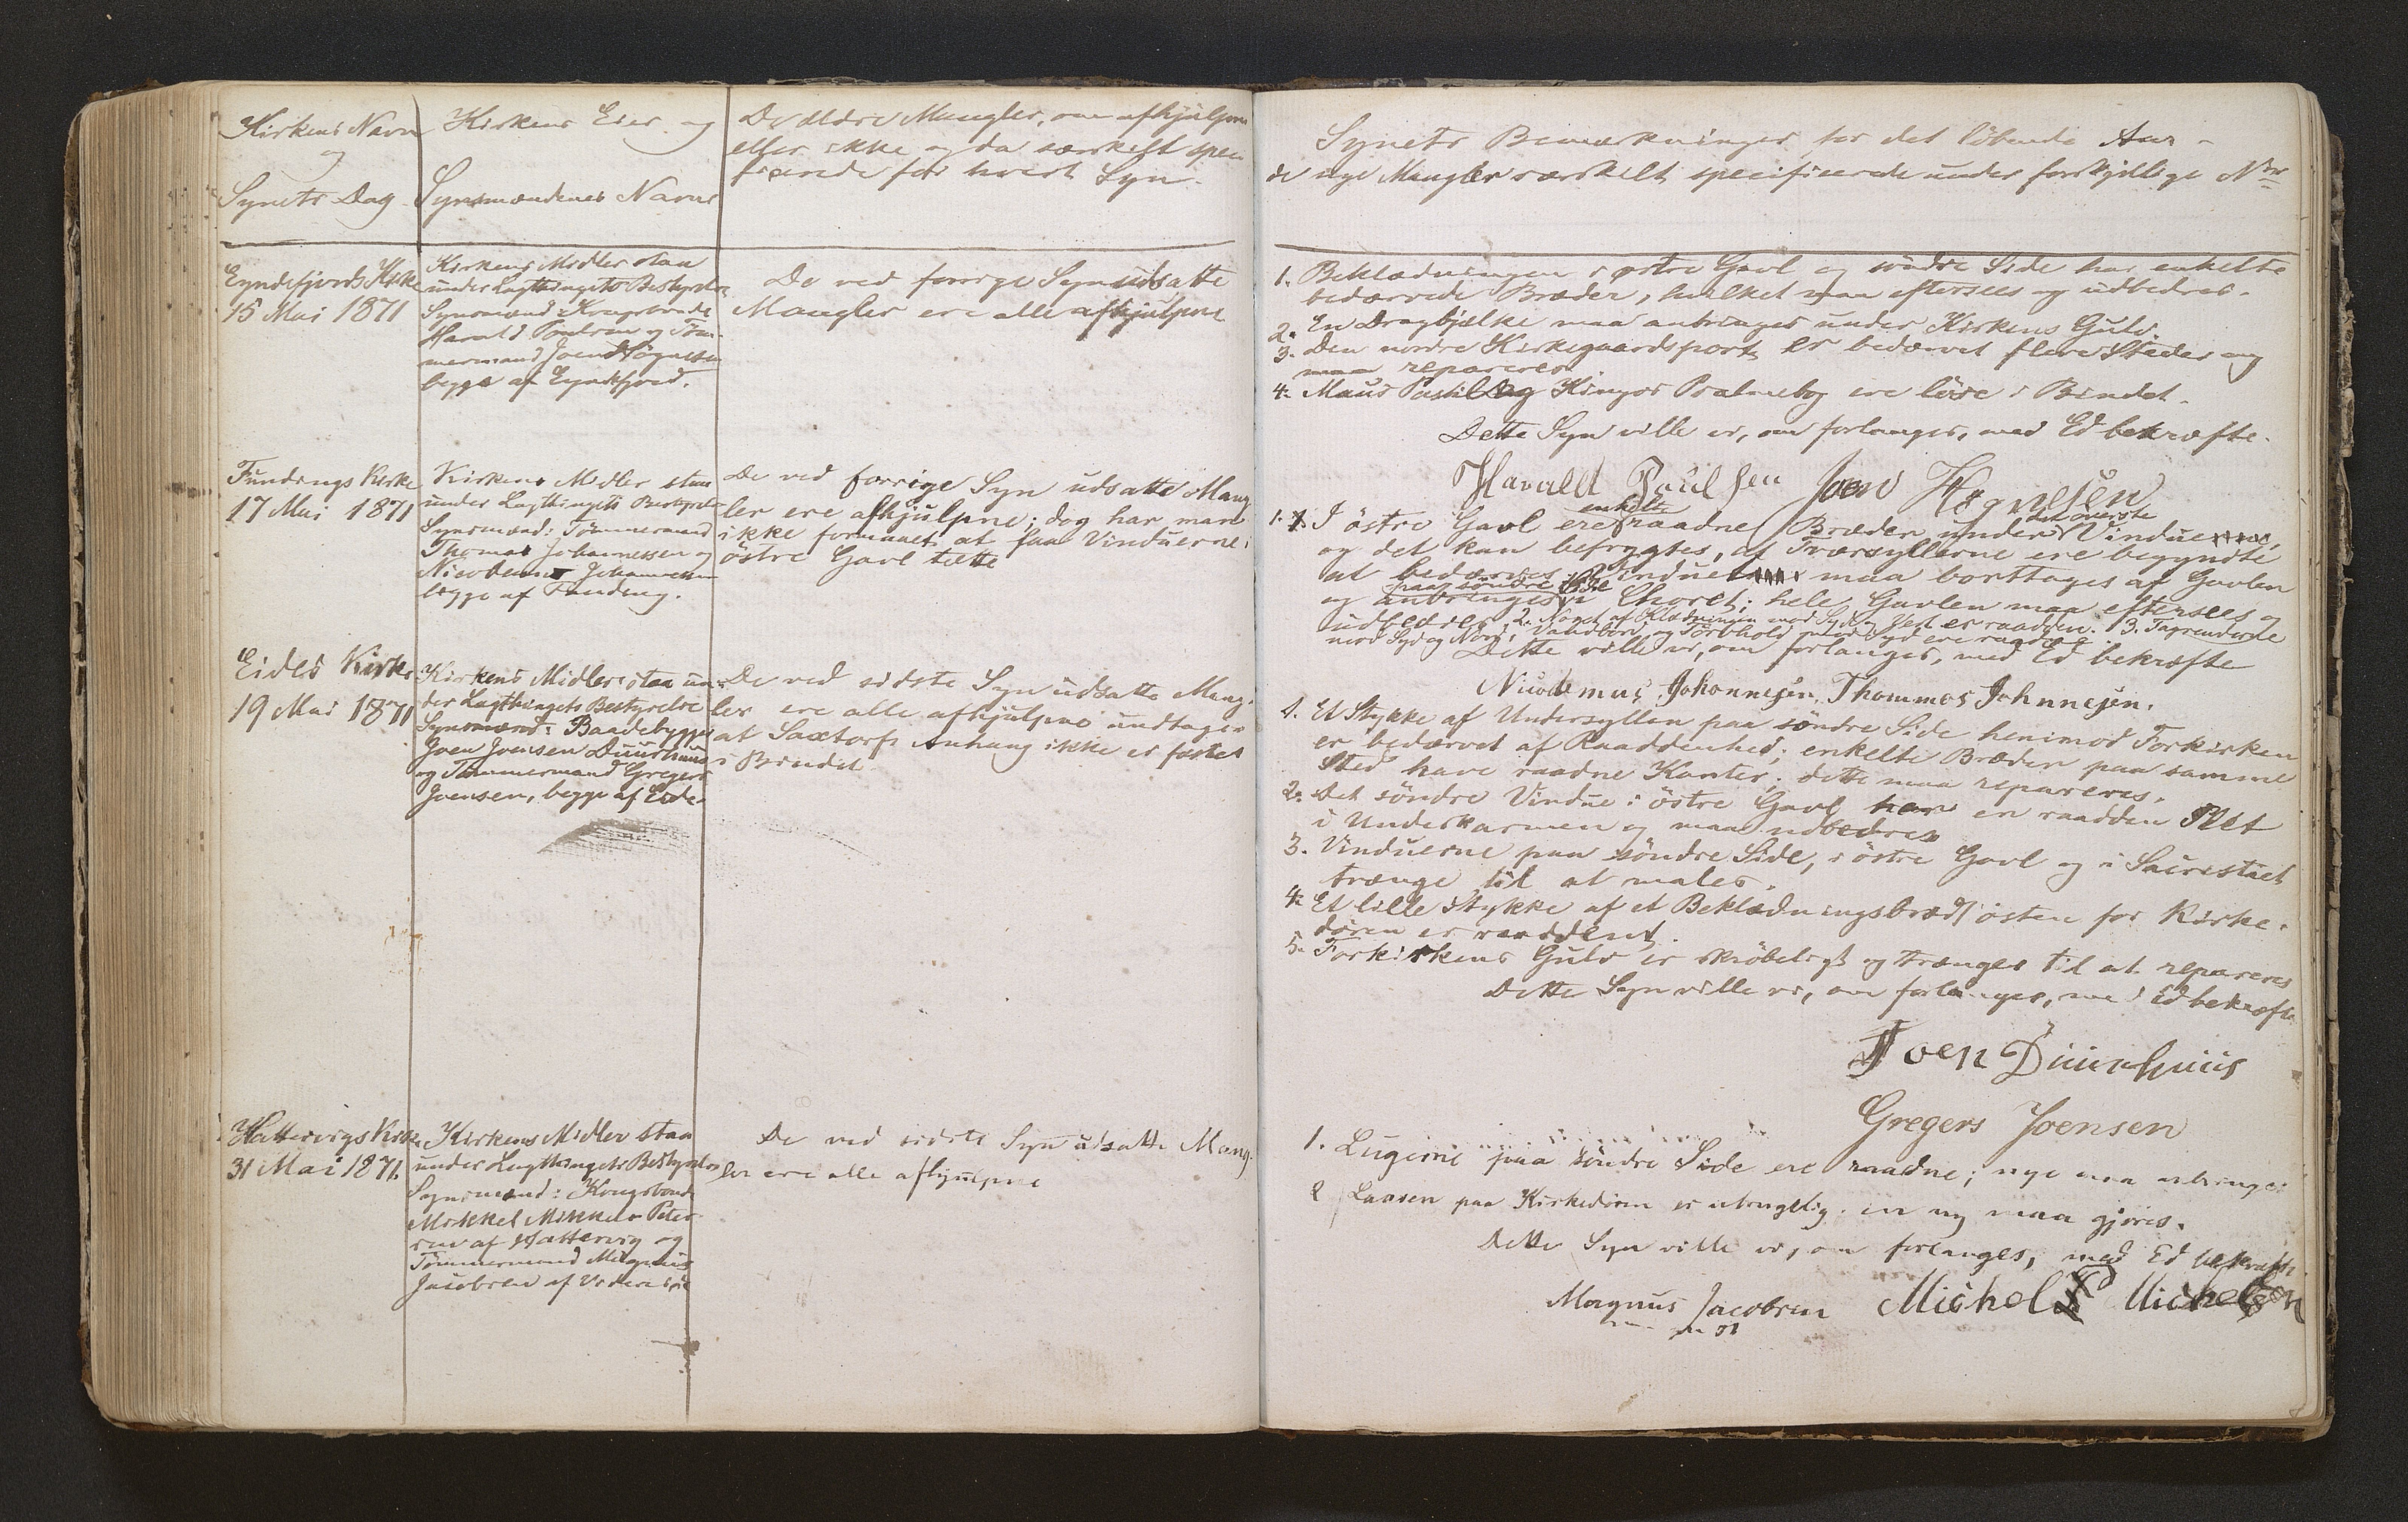 Kirkens Navn
og
Synets Dag
Kirkens Eier og
Synsmændenes Navne
De ældre Mangler, om afhjulpne
eller ikke og da særskilt speci
ficerede for hvert Syn.
Eyndefjords Kirke
15 Mai 1871
Kirkens Midler staa
under Lagthingets Bestyrelse
Synsmænd: Kongsbonde
Harald Poulsen og Tøm-
mermand Joen Høgnesen
begge af Eyndefjord.
De ved forrige Syn udsatte
Mangler ere alle afhjulpne
Fundings Kirke
17 Mai 1871
Kirkens Midler staa
under Lagthingets Bestyrelse
Synsmænd: Tømmermand
Thomas Johannessen og
Nicodemus Johannesen
begge af Funding.
De ved forrige Syn udsatte Mang
ler ere afhjulpne; dog har man
ikke formaaet at faa Vinduerne i
østre Gavl tætte
Eides Kirke
19 Mai 1871
Kirkens Midler staa un-
der Lagthingets Bestyrelse
Synsmænd: Baadebygger
Joen Joensen Duurhuus
og Tømmermand Gregers
Joensen, begge af Eide.
De ved sidste Syn udsatte Mang-
ler ere alle afhjulpne undtagen
at Saxtorfs Anhang ikke er fæstet
i Bindet
Hattervigs Kirke
31 Mai 1871.
Kirkens Midler staa
under Lagthingets Bestyrelse
Synsmænd: Kongsbonde
Mikkel Mikkels Peter
sen af Hattervig og
Tømmermand Magnus
Jacobsen af
De ved sidste Syn udsatte Mang
ler ere alle afhjulpne
Synets Bemærkninger for det løbende Aar -
de nye Mangler særskilt specificerede under forskjellige Nre
1. Beklædningen i østre Gavl og søndre Side har enkelte
bedærvede Bræder, hvilket maa eftersees og udbedres.
2. En Dragbjælke maa anbringes under Kirkens Gulv.
3. Den nordre Kirkegaardsport er bedærvet flere Steder og
maa repareres
4. Maus Postil og Kingos Psalmebog ere løse i Bindet.
Dette Syn ville vi, om forlanges, med Ed bekræfte.
Harald Paulsen Joen Høgnesen
1. I østre Gavl ere enkelte raadne Bræder under det øverste Vindue,
og det kan befrygtes, at Tværsyllerne ere begyndte
at bedærves; Vinduet maa borttages af Gavlen
og anbringes paa søndre Side i Choret; hele Gavlen maa eftersees og
udbedres. 2. Noget af Klædningen mod Syd og Vest er raadden. 3. Tagrenderne
mod Syd og Nord, Vandbord og Tørvhold mod Syd ere raadne
Dette ville vi, om forlanges, med Ed bekræfte
Nicodemus Johannesen, Thommas Johnnesen.
1. Et Stykke af Undersyllen paa søndre Side henimod Forkirken
er bedærvet af Raaddenhed; enkelte Bræder paa samme
Sted have raadne Kanter; dette maa repareres.
2. Det søndre Vindue i østre Gavl har en raadden Plet
i Underkarmen og maa udbedres
3. Vinduerne paa søndre Side, i østre Gavl og i Sacristiet
trænge til at males.
4. Et lille Stykke af et Beklædningsbræd østen for Kirke-
døren er raaddent.
5. Forkirkens Gulv er skrøbeligt og trænger til at repareres
Dette Syn ville vi, om forlanges, med Ed bekræfte
Joen Duurhuus
Gregers Joensen
1. Lugerne paa søndre Side ere raadne; nye maa anbringes
2 Laasen paa Kirkedøren er ubrugelig. en ny maa gjøres.
Dette Syn ville vi, om forlanges, med Ed bekræfte
Magnus Jacobsen Michel Michelsen